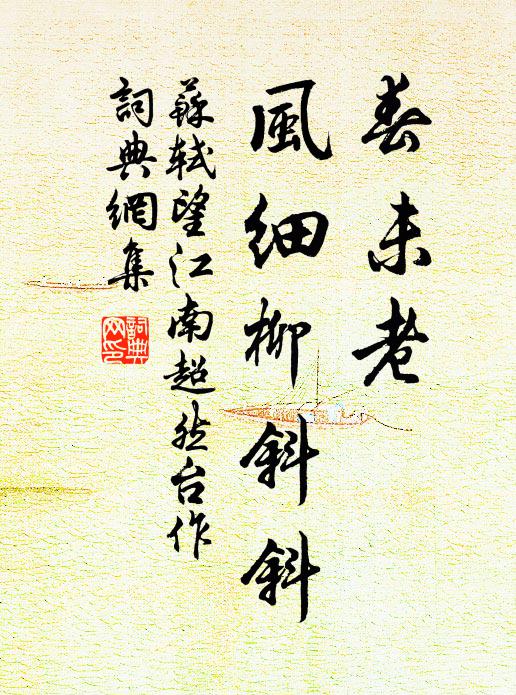 春未老
風細柳斜斜
蘇軾望江南超然台作
詞典網集
詞典
网印